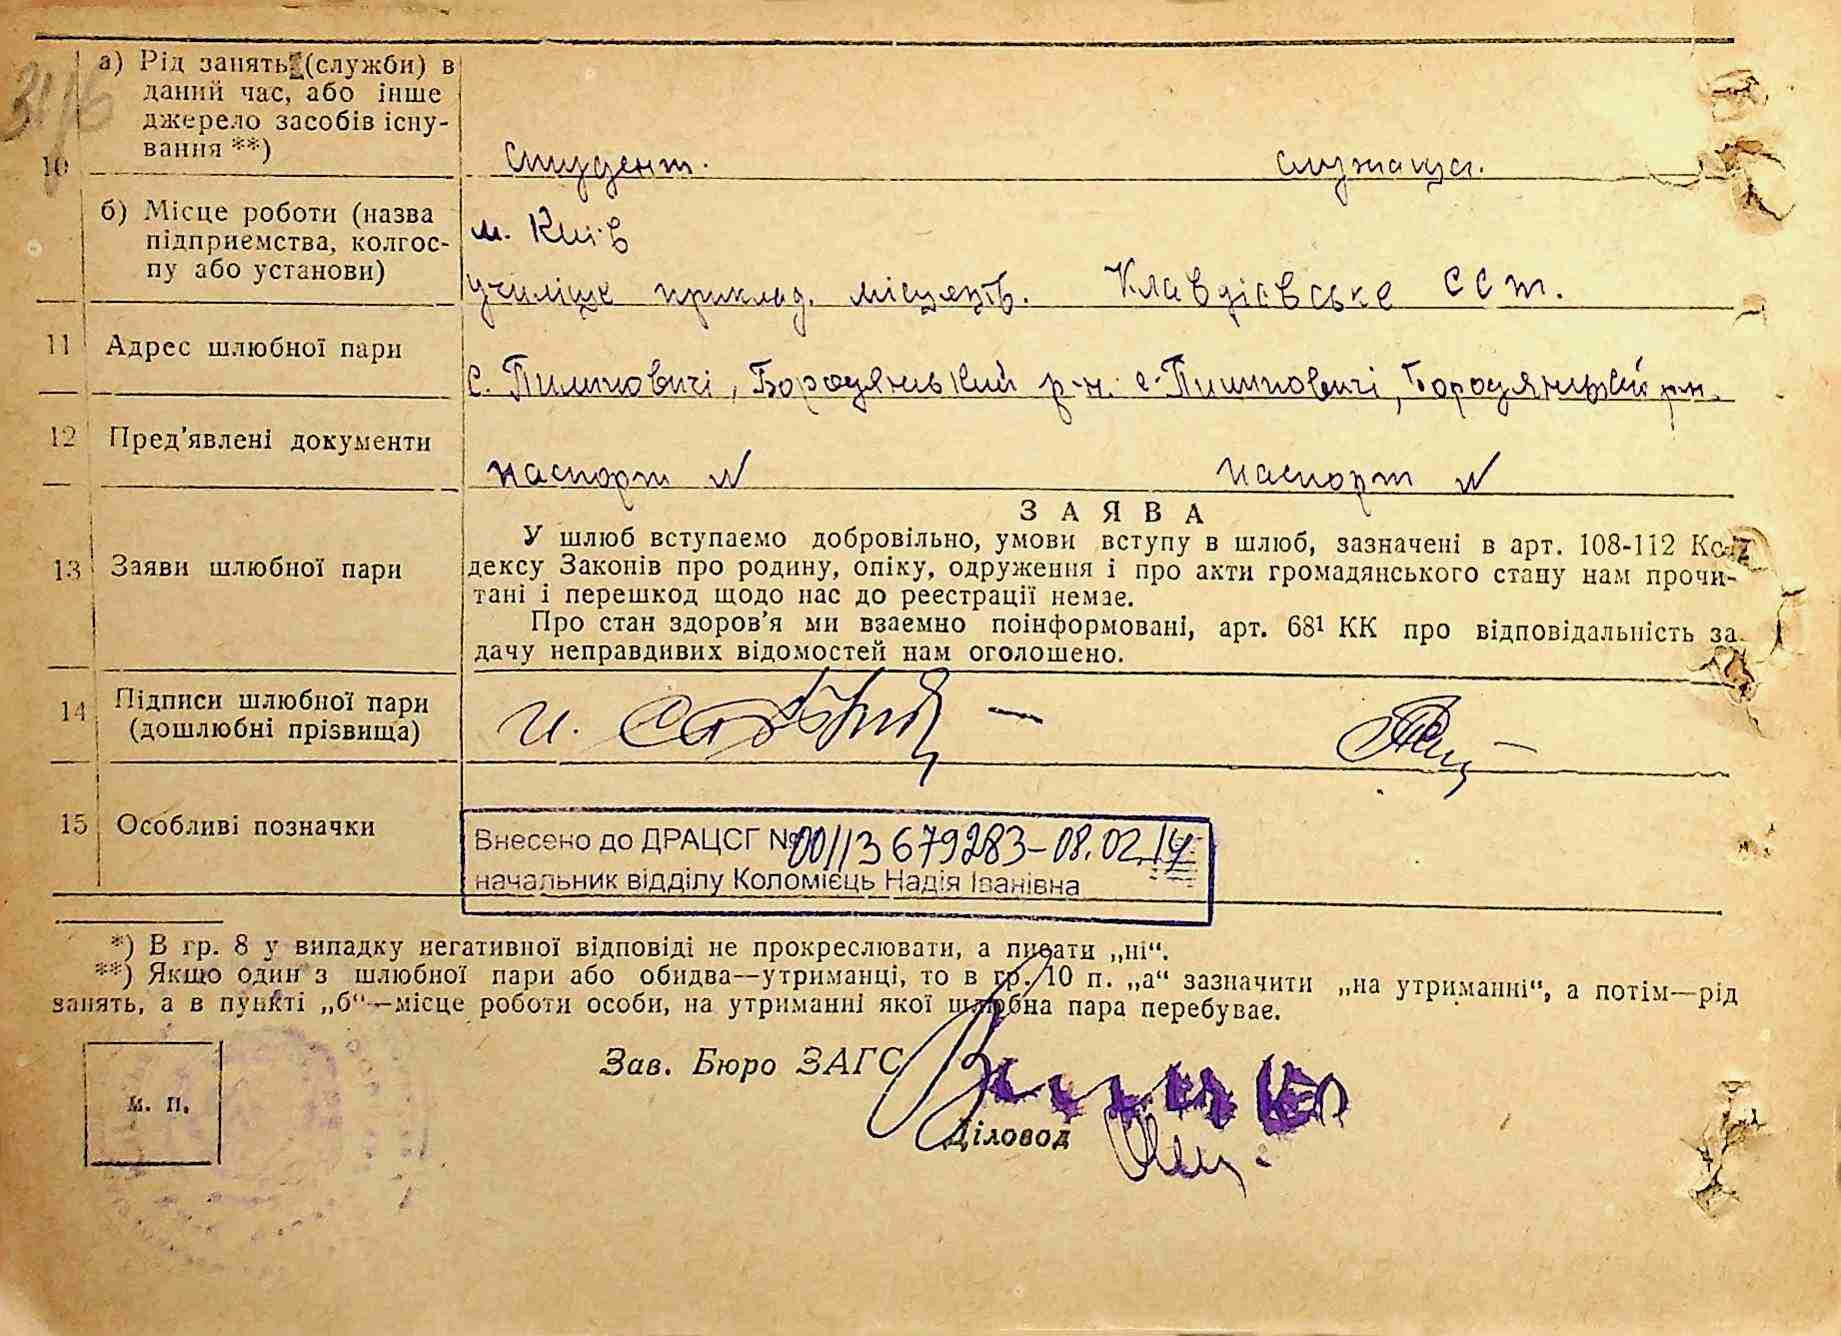 а) Рід занять (служби) в
даний час, або інше
джерело засобів існу-
вання **)
10
студент. служаща.
б) Місце роботи (назва
підприємства, колгос-
пу або установи)
м. Київ
училіще приклад. мисцетв. Клавдієвське ССТ.
11 Адрес шлюбної пари
с. Пилиповичі, Бородянський р-н. с. Пилиповичі, Бородянський р-н.
12 Пред'явлені документи
паспорт N паспорт N
13 Заяви шлюбної пари
ЗАЯВА
У шлюб вступаємо добровільно, умови вступу в шлюб, зазначені в арт. 108-112 Ко-
дексу Законів про родину, опіку, одруження і про акти громадянського стану нам прочи-
тані і перешкод щодо нас до реєстрації немає.
Про стан здоров'я ми взаємно поінформовані, арт. 68¹ КК про відповідальність за
дачу неправдивих відомостей нам оголошено.
14 Підписи шлюбної пари
(дошлюбні прізвища)
15 Особливі позначки
Внесено до ДРАЦСГ № 00113679283-08.02.14
начальник відділу Коломієць Надія Іванівна
*) В гр. 8 у випадку негативної відповіді не прокреслювати, а писати „ні“.
**) Якщо один з шлюбної пари або обидва—утриманці, то в гр. 10 п. „а“ зазначити „на утриманні“, а потім—рід
занять, а в пункті „б“—місце роботи особи, на утриманні якої шлюбна пара перебуває.
Зав. Бюро ЗАГС
м. п.
Діловод